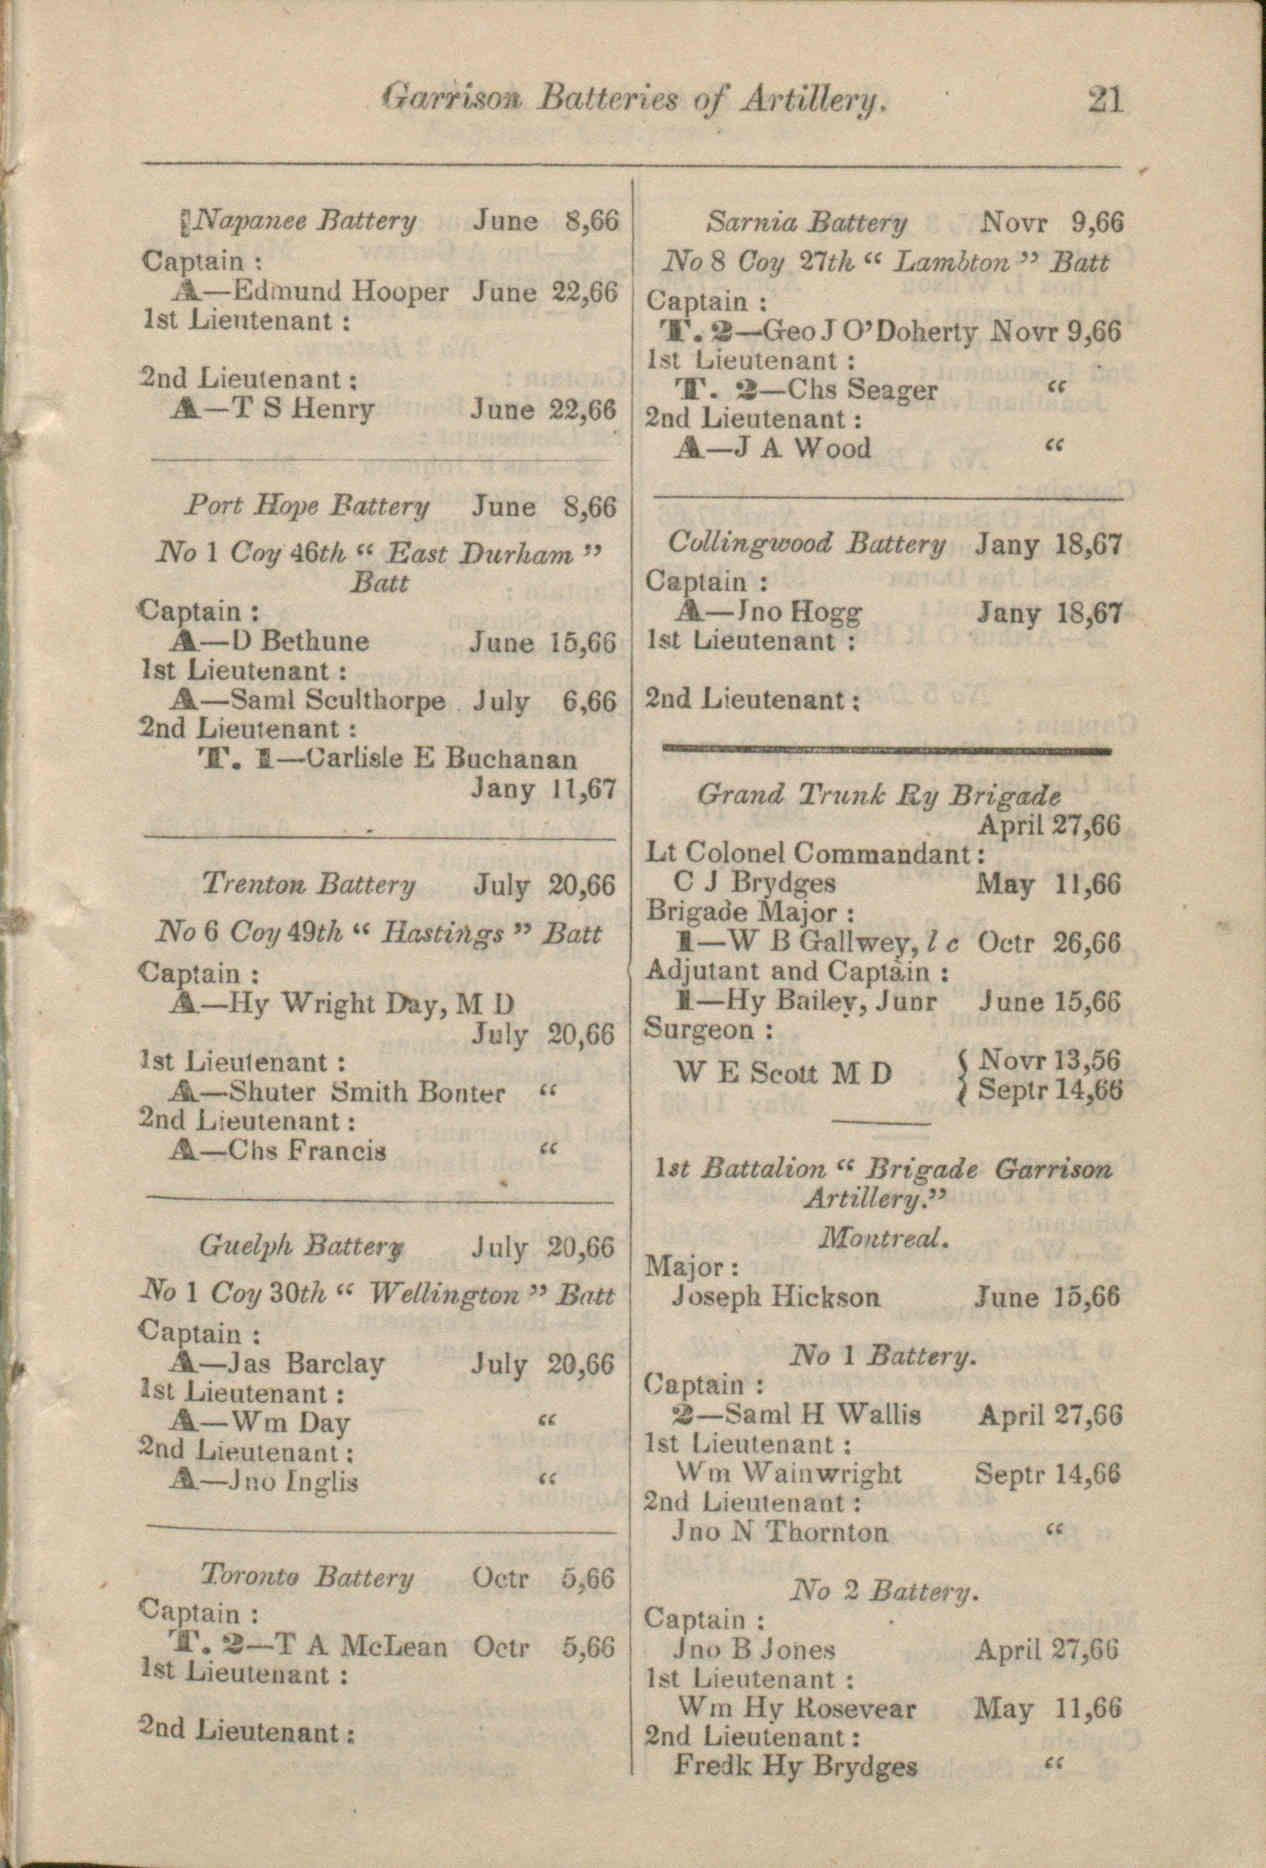 Garrison Batteries of Artillery. 21
Napanee Battery June 8,66
Captain :
A—Edmund Hooper June 22,66
1st Lieutenant :
2nd Lieutenant :
A—T S Henry June 22,66
Port Hope Battery June 8,66
No 1 Coy 46th “ East Durham ”
Batt
Captain :
A—D Bethune June 15,66
1st Lieutenant :
A—Saml Sculthorpe July 6,66
2nd Lieutenant :
T. 1—Carlisle E Buchanan
Jany 11,67
Trenton Battery July 20,66
No 6 Coy 49th “ Hastings ” Batt
Captain :
A—Hy Wright Day, M D
July 20,66
1st Lieutenant :
A—Shuter Smith Bonter “
2nd Lieutenant :
A—Chs Francis “
Guelph Battery July 20,66
No 1 Coy 30th “ Wellington ” Batt
Captain :
A—Jas Barclay July 20,66
1st Lieutenant :
A—Wm Day “
2nd Lieutenant :
A—Jno Inglis “
Toronto Battery Octr 5,66
Captain :
T. 2—T A McLean Octr 5,66
1st Lieutenant :
2nd Lieutenant :
Sarnia Battery Novr 9,66
No 8 Coy 27th “ Lambton ” Batt
Captain :
T. 2—Geo J O’Doherty Novr 9,66
1st Lieutenant :
T. 2—Chs Seager “
2nd Lieutenant :
A—J A Wood “
Collingwood Battery Jany 18,67
Captain :
A—Jno Hogg Jany 18,67
1st Lieutenant :
2nd Lieutenant :
Grand Trunk Ry Brigade
April 27,66
Lt Colonel Commandant :
C J Brydges May 11,66
Brigade Major :
1—W B Gallwey, l c Octr 26,66
Adjutant and Captain :
1—Hy Bailey, Junr June 15,66
Surgeon :
W E Scott M D { Novr 13,56
Septr 14,66
1st Battalion “ Brigade Garrison
Artillery.”
Montreal.
Major :
Joseph Hickson June 15,66
No 1 Battery.
Captain :
2—Saml H Wallis April 27,66
1st Lieutenant :
Wm Wainwright Septr 14,66
2nd Lieutenant :
Jno N Thornton “
No 2 Battery.
Captain :
Jno B Jones April 27,66
1st Lieutenant :
Wm Hy Rosevear May 11,66
2nd Lieutenant :
Fredk Hy Brydges “